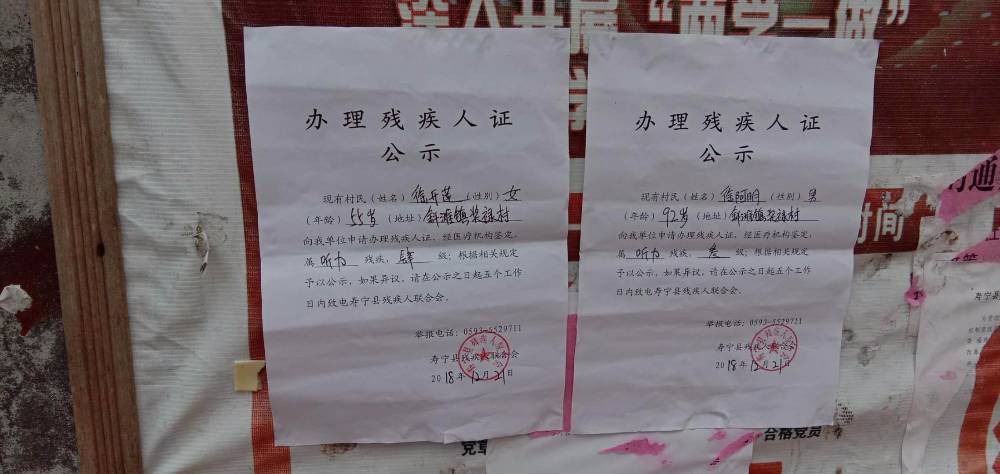 深入开展“两学一做”
学
办理残疾人证
公示
现有村民(姓名) 徐开莲 (性别) 女
(年龄) 55岁 (地址) 斜滩镇
向我单位申请办理残疾人证,经医疗机构鉴定,
属 听力 残疾, 肆 级;根据相关规定
予以公示,如果异议,请在公示之日起五个工作
日内致电寿宁县残疾人联合会。
举报电话:0593-5529711
寿宁县残疾人联合会
2018年12月21日
办理残疾人证
公示
现有村民(姓名) 徐阿明 (性别) 男
(年龄) 92岁 (地址) 斜滩镇
向我单位申请办理残疾人证,经医疗机构鉴定,
属 听力 残疾, 叁 级;根据相关规定
予以公示,如果异议,请在公示之日起五个工作
日内致电寿宁县残疾人联合会。
举报电话:0593-5529711
寿宁县残疾人联合会
2018年12月21日
通
时间
寿宁县
党章
合格党员